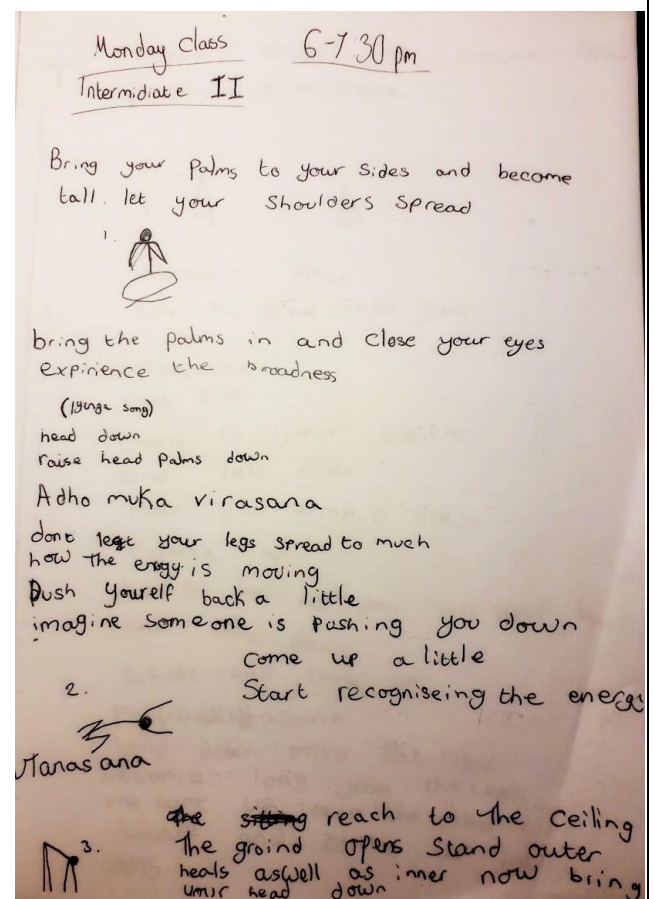 Monday Class 6-7:30 pm
Intermidiate II
Bring your palms to your sides and become
tall. let your shoulders spread
1.
bring the palms in and close your eyes
expirience the broadness
(Iyenga song)
head down
raise head palms down
Adho muka virasana
dont let your legs spread to much
how the enrgy is moving
Push yourelf back a little
imagine someone is pushing you down
come up a little
2. Start recogniseing the energy
utanasana
reach to the ceiling
3. The groind opens Stand outer
heals aswell as inner now bring
your head down